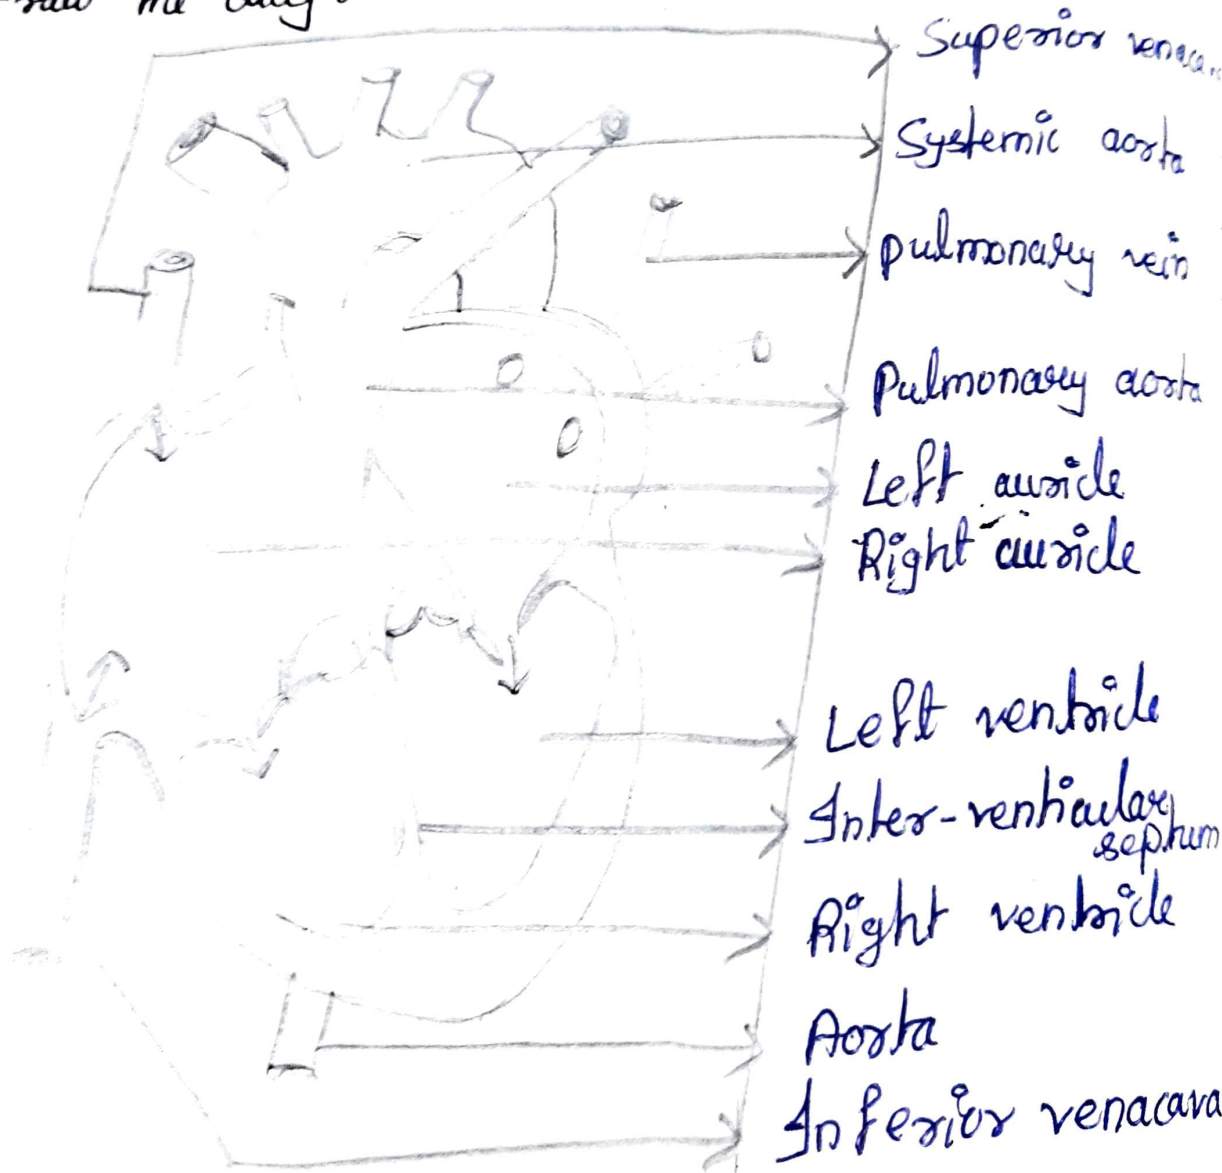 Superior
Systemic aorta
Pulmonary vein
Pulmonary aorta
Left auricle
Right auricle
Left ventricle
Inter-ventricular
septum
Right ventricle
Aorta
Inferior venacava